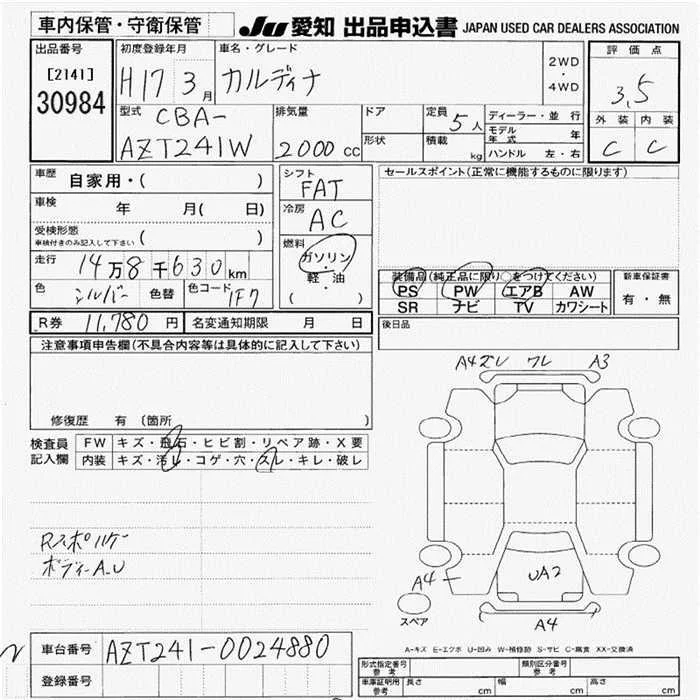 車内保管・守衛保管
JU 愛知 出品申込書 JAPAN USED CAR DEALERS ASSOCIATION
出品番号
[2141]
30984
初度登録年月
H17 3月
車名・グレード
カルディナ
2WD
・
4WD
評価点
3,5
外装 内装
C C
型式
CBA-
AZT241W
排気量
2000 cc
ドア
形状
定員 5人
積載 kg
ディーラー・並行
モデル年式 年
ハンドル 左・右
車歴 自家用・( )
車検 年 月( 日)
受検形態
車検付きのみ記入して下さい ( )
走行 14万8千630km
色 シルバー 色替 色コード 1F7
シフト
FAT
冷房
AC
燃料
ガソリン
・
軽・油
( )
セールスポイント(正常に機能するものに限ります)
装備品(純正品に限り○をつけてください)
PS PW エアB AW
SR ナビ TV カワシート
新車保証書
有・無
R券 11,780 円 名変通知期限 月 日
後日品
注意事項申告欄(不具合内容等は具体的に記入して下さい)
修復歴 有 (箇所 )
検査員記入欄
FW キズ・飛石・ヒビ割・リペア跡・X要
内装 キズ・汚レ・コゲ・穴・スレ・キレ・破レ
Rスポイルワケ
ボディーA.U
A4ズレ ワレ A3
A4
UA2
A4
スペア
A-キズ E-エクボ U-凹み W-補修跡 S-サビ C-腐食 XX-交換済
車台番号 AZT241-0024880
登録番号
形式指定番号 参考
類別区分番号 参考
車庫証明用 参考 長さ cm 幅 cm 高さ cm